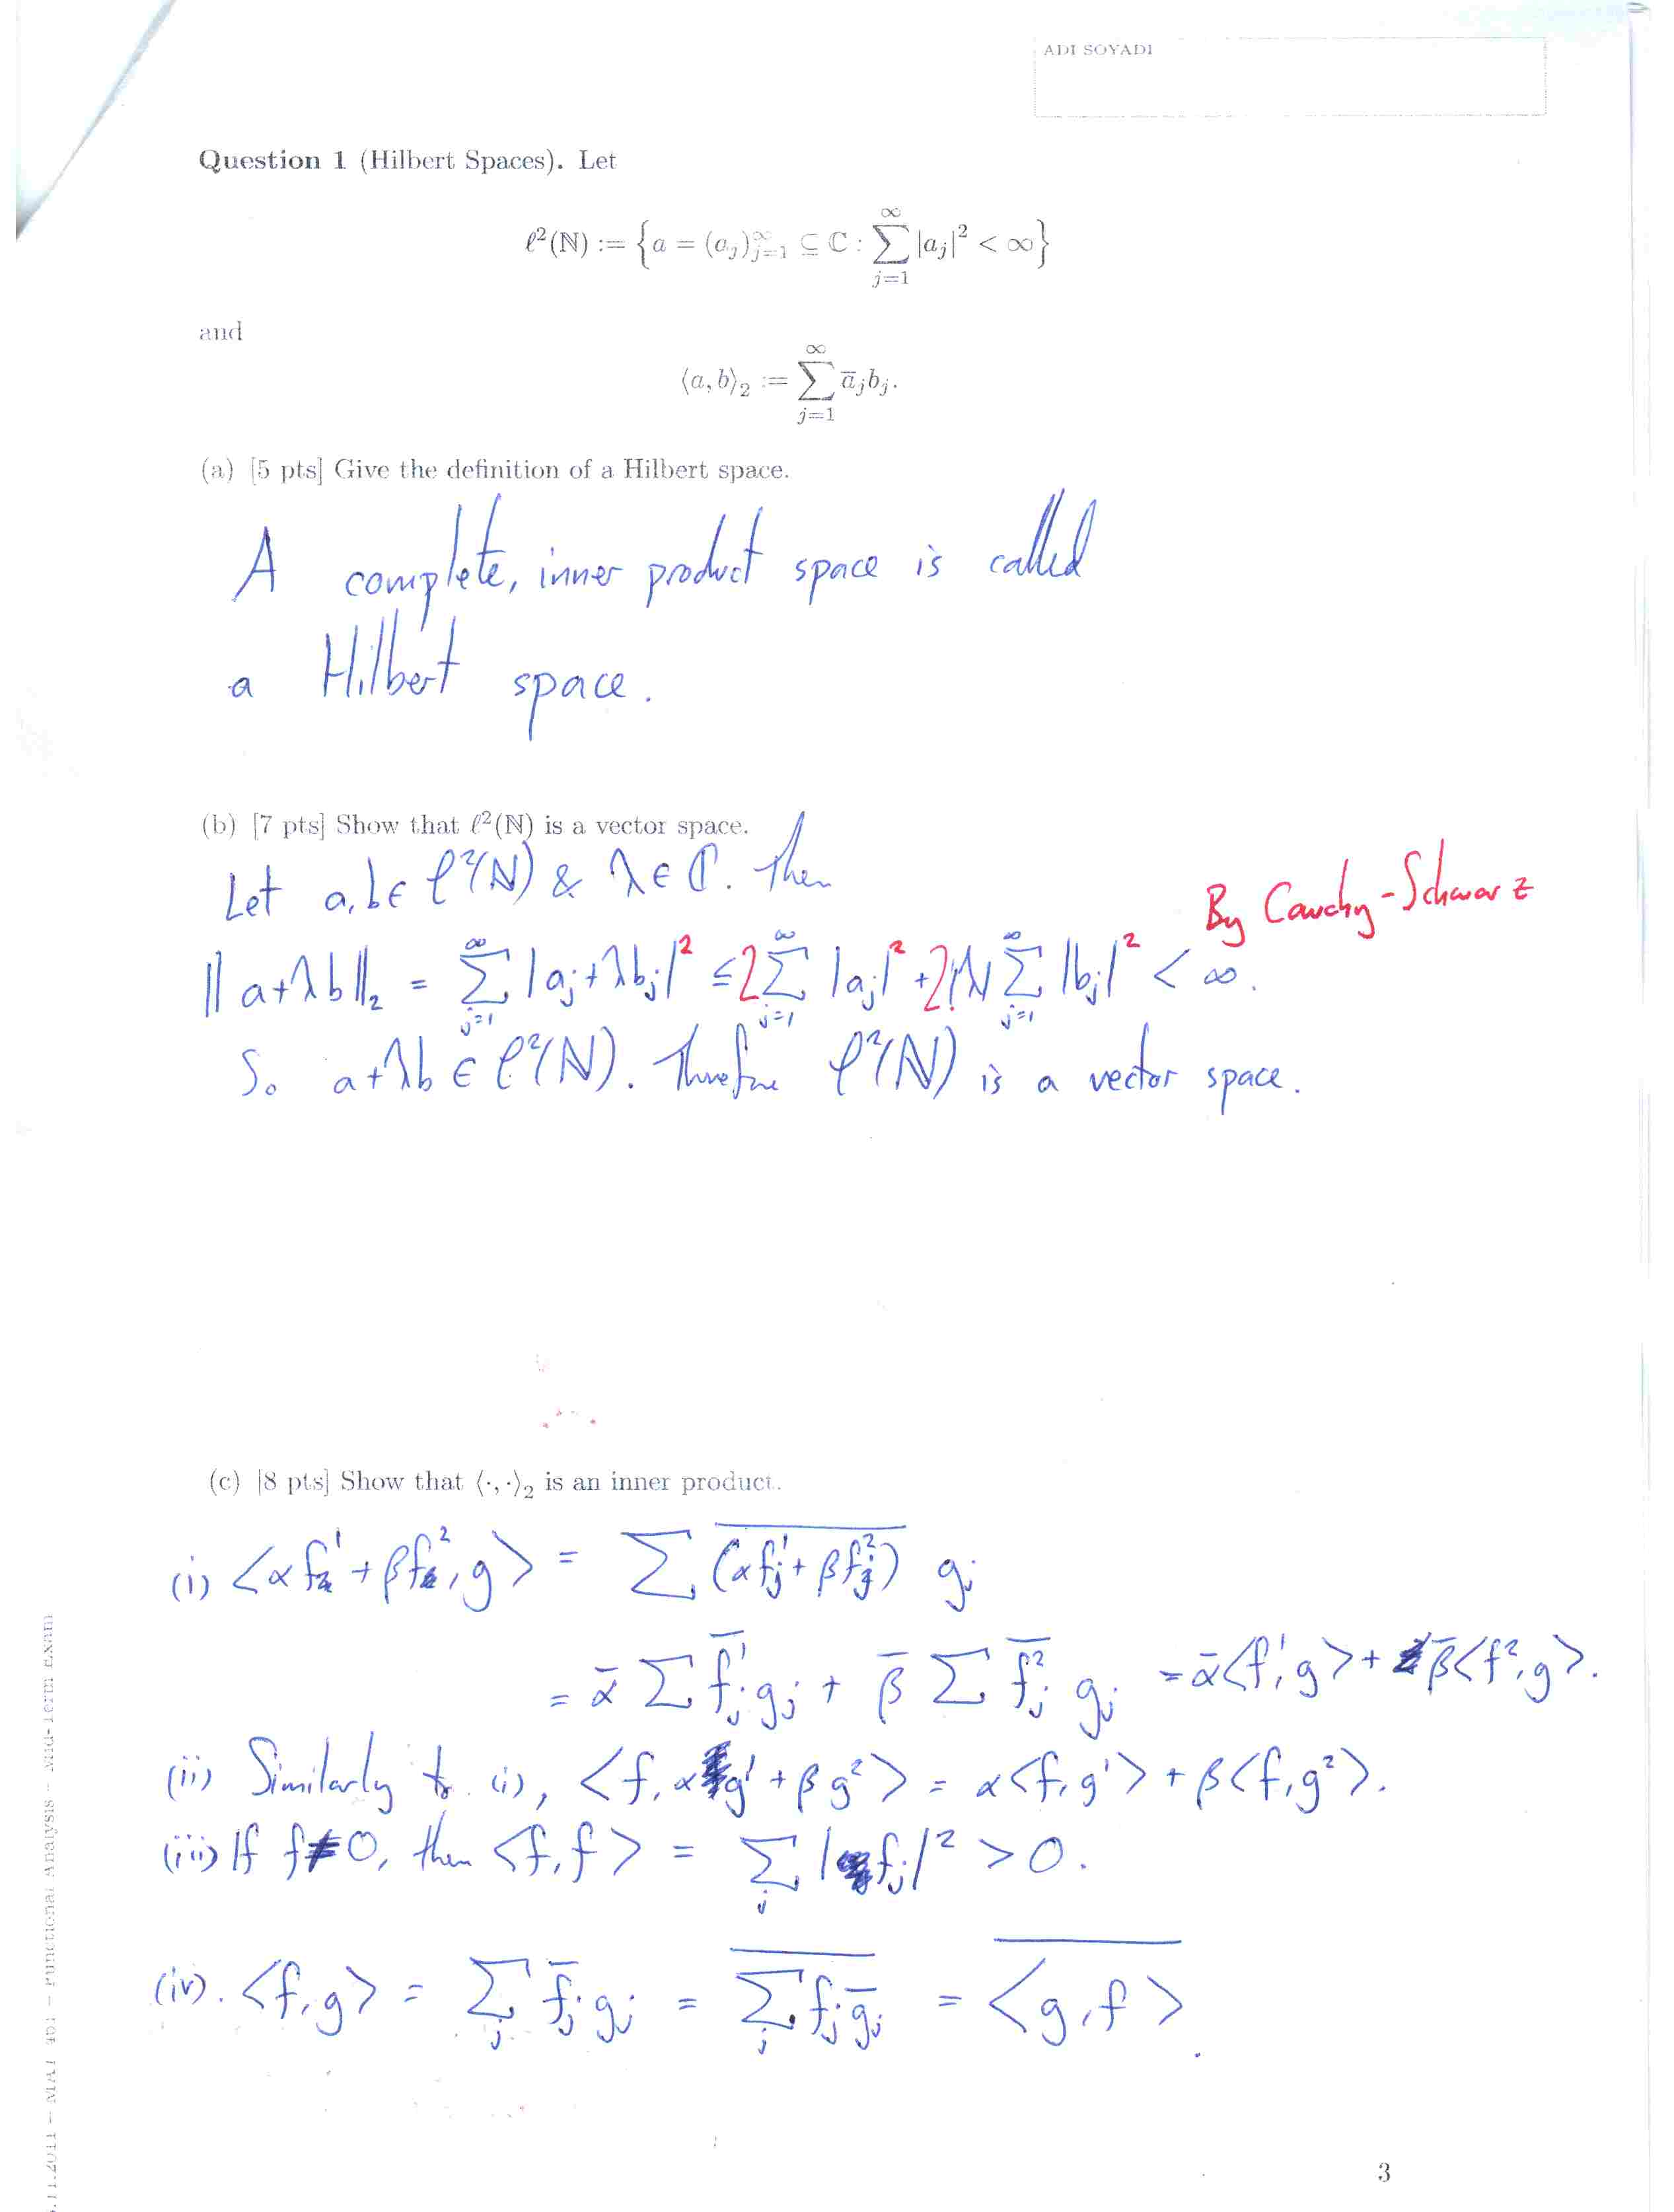 ADI SOYADI
Question 1 (Hilbert Spaces). Let
ℓ²(ℕ) := { a = (a_j)_{j=1}^∞ ⊆ ℂ : ∑_{j=1}^∞ |a_j|² < ∞ }
and
⟨a, b⟩₂ := ∑_{j=1}^∞ a̅_j b_j.
(a) [5 pts] Give the definition of a Hilbert space.
A complete, inner product space is called
a Hilbert space.
(b) [7 pts] Show that ℓ²(ℕ) is a vector space.
Let a, b ∈ ℓ²(ℕ) & λ ∈ ℂ. Then
By Cauchy-Schwarz
‖a+λb‖₂ = ∑_{j=1}^∞ |a_j+λb_j|² ≤ 2∑_{j=1}^∞ |a_j|² + 2|λ| ∑_{j=1}^∞ |b_j|² < ∞.
So a+λb ∈ ℓ²(ℕ). Therefore ℓ²(ℕ) is a vector space.
(c) [8 pts] Show that ⟨·, ·⟩₂ is an inner product.
(i) <αf¹ + βf², g> = ∑ \overline{(αf_j¹ + βf_j²)} g_j
= α̅ ∑ \overline{f_j¹} g_j + β̅ ∑ \overline{f_j²} g_j = α̅<f¹, g> + β̅<f², g>.
(ii) Similarly to (i), <f, αg¹ + βg²> = α<f, g¹> + β<f, g²>.
(iii) If f≠0, then <f, f> = ∑_j |f_j|² > 0.
(iv). <f, g> = ∑_j \overline{f_j} g_j = \overline{∑_j f_j \overline{g_j}} = \overline{<g, f>}.
.11.2011 – MAT 461 – Functional Analysis – Mid-Term Exam
3